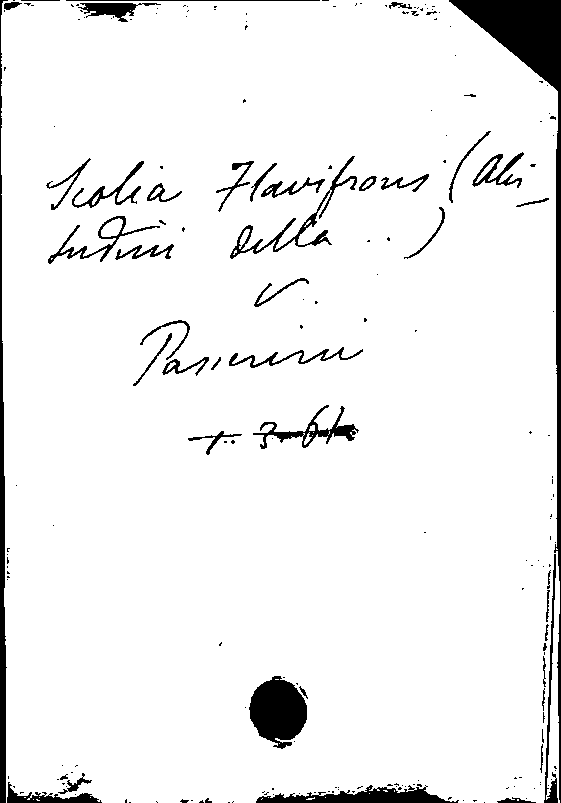 Scolia Flavifrons (Abi-
tudini della ..)
v.
Passerini